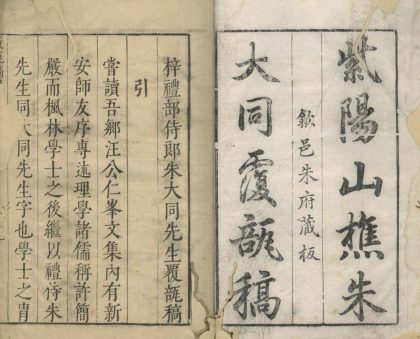 紫陽山樵朱
歙邑朱府藏板
大同覆瓿稿
梓禮部侍郎朱大同先生覆瓿稿
引
嘗讀吾鄉汪公仁峯文集內有新
安師友序專述理學諸儒稱許簡
嚴而楓林學士之後繼以禮侍朱
先生同大同先生字也學士之冑